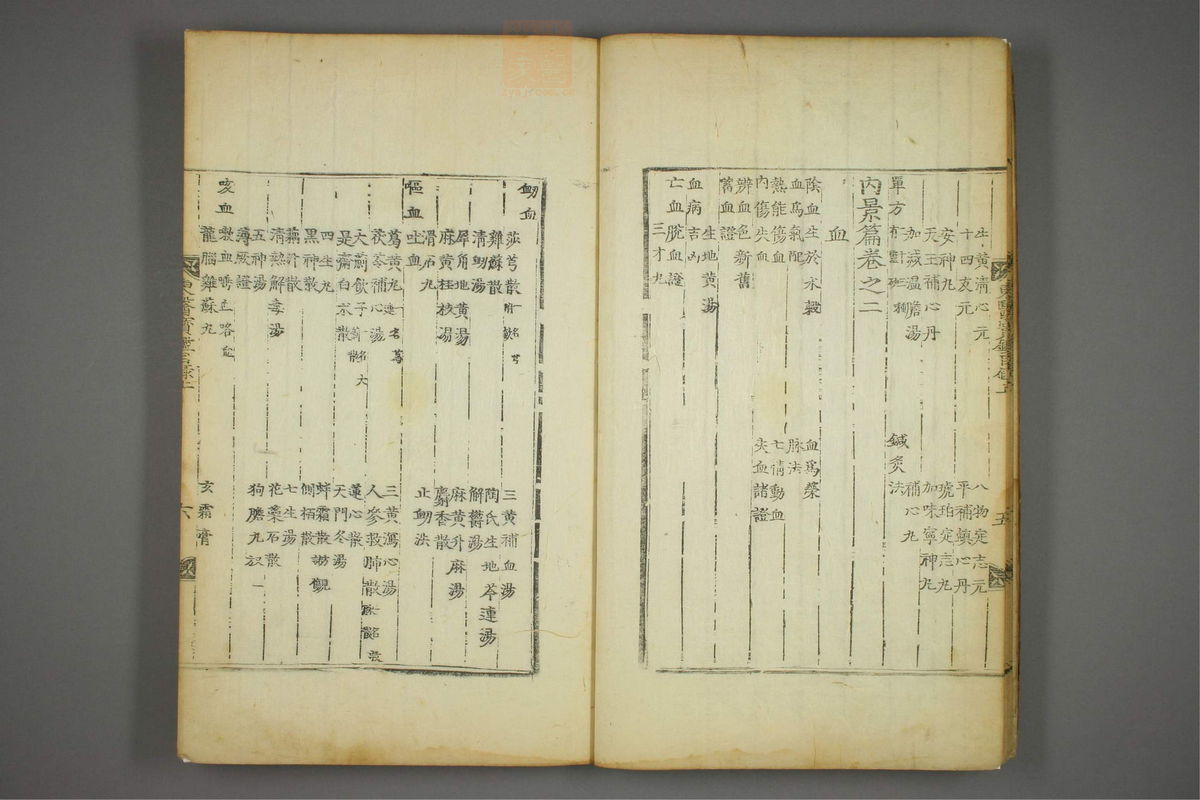 牛黃淸心元
八物定志元
十四友元
平補鎭心丹
安神丸
琥珀定志丸
天王補心丹
加味寧神丸
加減温膽湯
補心丸
單方
有一對班劑
鍼灸法
內景篇卷之二
血
陰血生於水穀
血爲榮
血爲氣配
脉法
熱能傷血
七情動血
內傷失血
失血諸證
辨血色新舊
蓄血證
生地黃湯
血病吉凶
亡血脫血證
三才丸
衂血
莎芎散
三黃補血湯
雞蘇散
陶氏生地芩連湯
淸衂湯
解鬱湯
犀角地黃湯
麻黃升麻湯
麻黃桂枝湯
麝香散
滑石丸
止衂法
嘔血
吐血
葛黃丸
三黃瀉心湯
茯苓補心湯
人參救肺散
大薊飮子
蓮心散
是齋白朮散
天門冬湯
四生丸
蚌霜散
黑神散
側栢散
藕汁散
七生湯
淸熱解毒湯
花蘂石散
五神湯
狗膽丸
薄厥證
咳血
嗽血
龍腦雞蘇丸
玄霜膏
東醫寶鑑目錄上
五
六